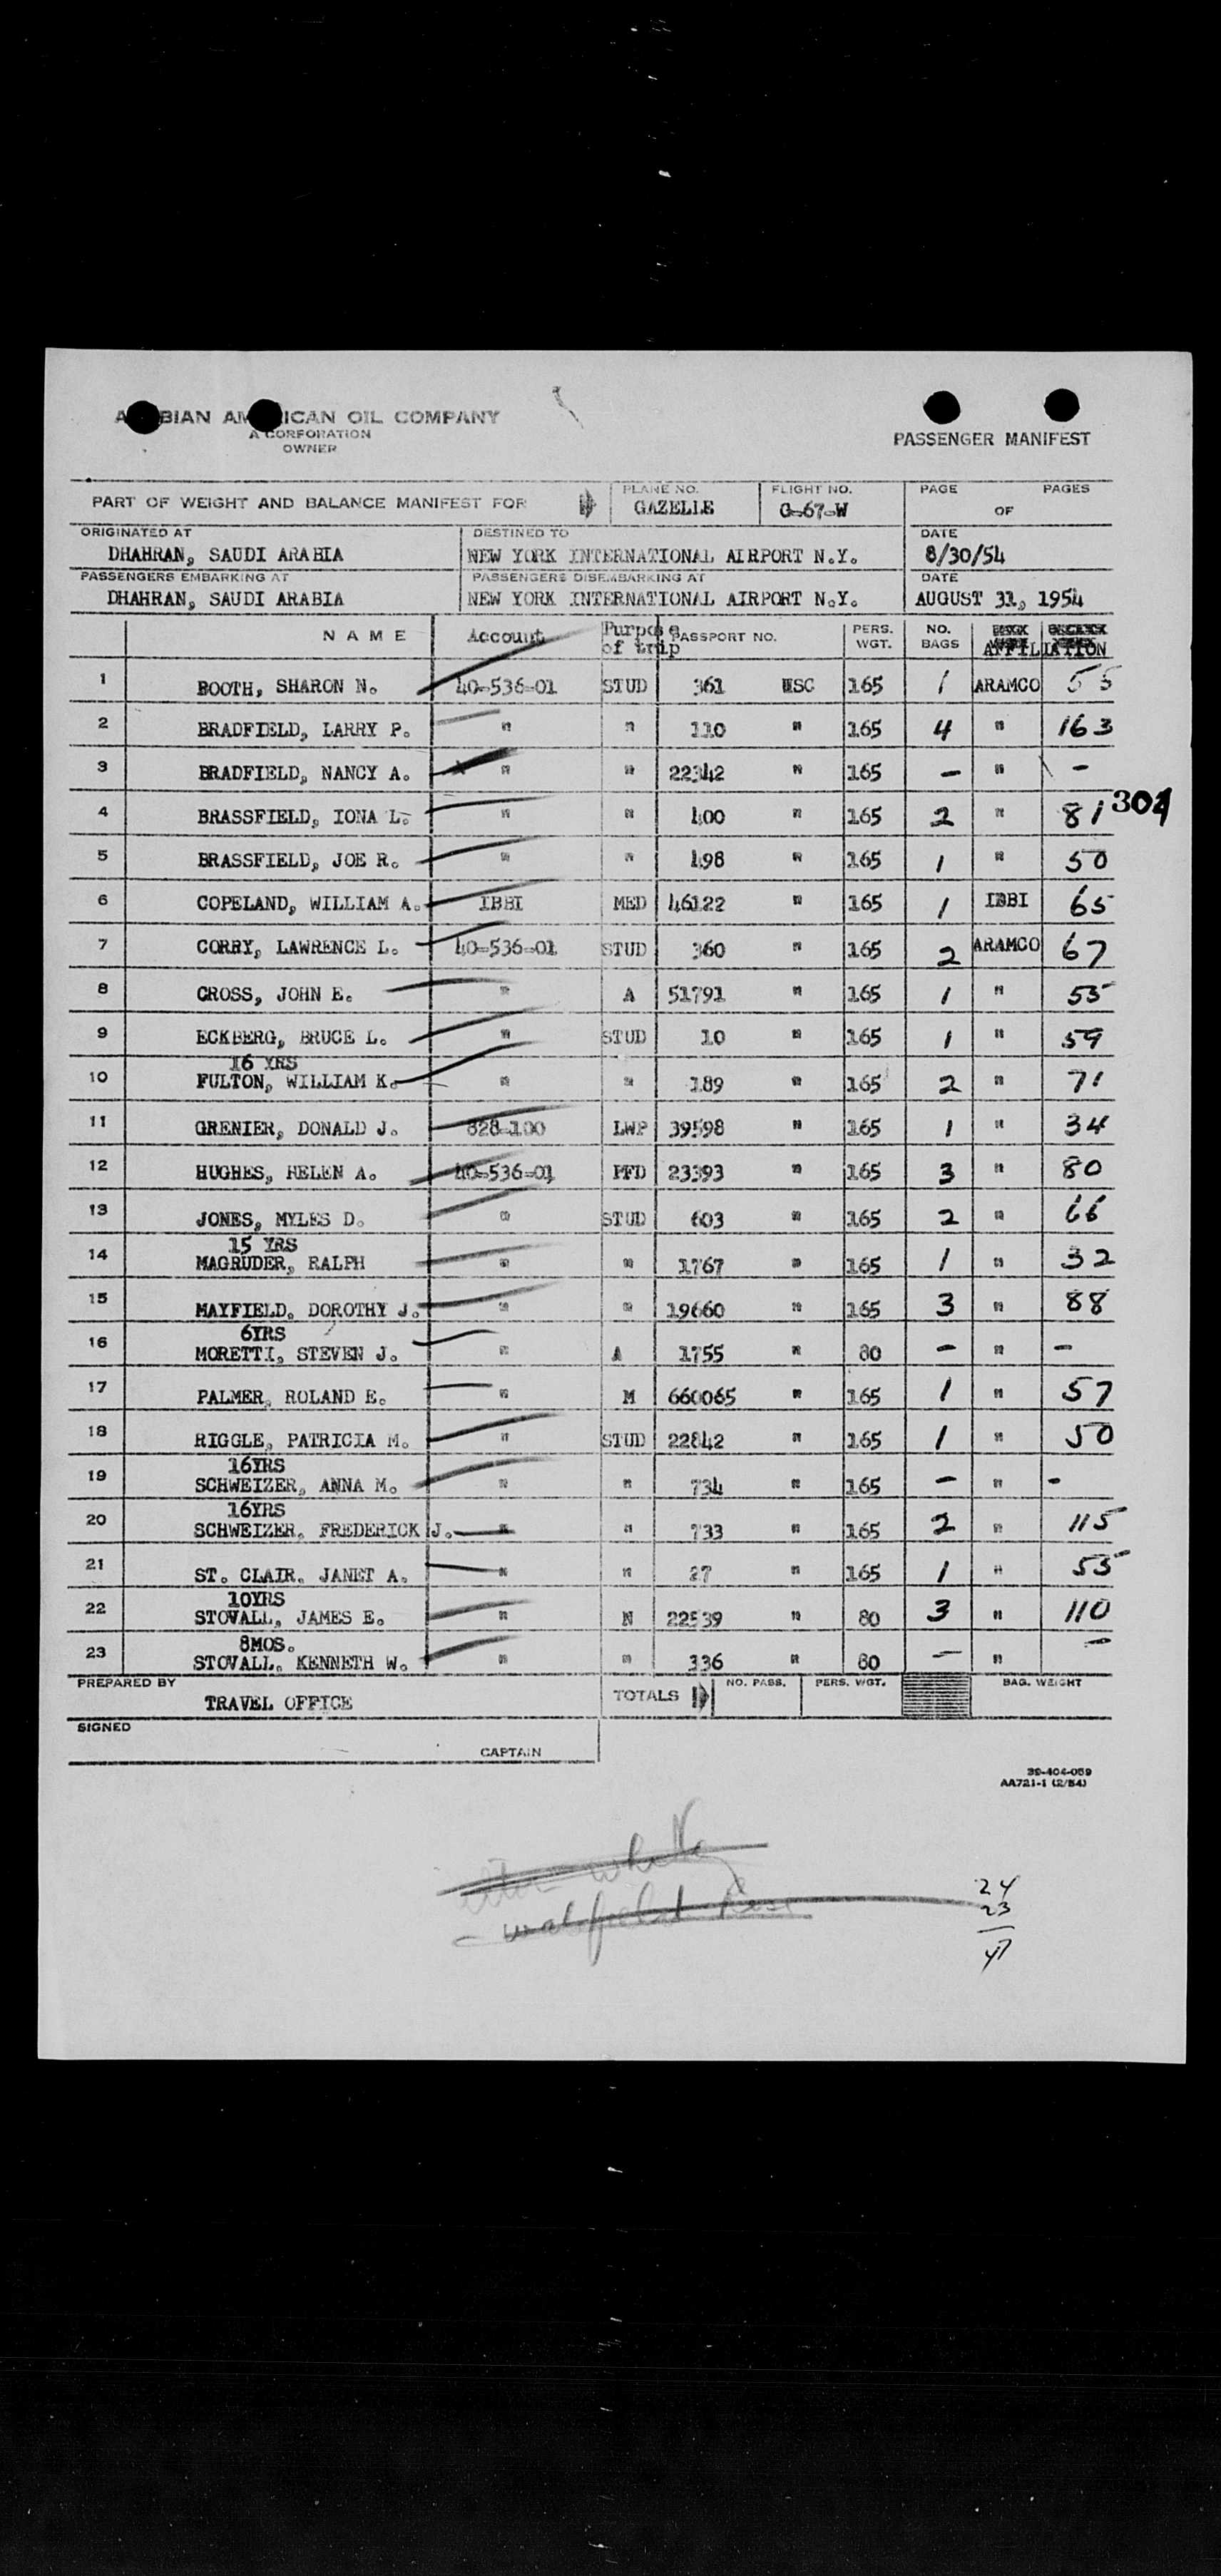 ARABIAN AMERICAN OIL COMPANY
A CORPORATION
OWNER
PASSENGER MANIFEST
PART OF WEIGHT AND BALANCE MANIFEST FOR PLANE NO. GAZELLE FLIGHT NO. G-67-W PAGE OF PAGES
ORIGINATED AT DESTINED TO DATE
DHAHRAN, SAUDI ARABIA NEW YORK INTERNATIONAL AIRPORT N.Y. 8/30/54
PASSENGERS EMBARKING AT PASSENGERS DISEMBARKING AT DATE
DHAHRAN, SAUDI ARABIA NEW YORK INTERNATIONAL AIRPORT N.Y. AUGUST 31, 1954
NAME Account Purpose of trip PASSPORT NO. PERS. WGT. NO. BAGS AFFILIATION
1 BOOTH, SHARON N. 40-536-01 STUD 361 USC 165 1 ARAMCO 55
2 BRADFIELD, LARRY P. " " 110 " 165 4 " 163
3 BRADFIELD, NANCY A. " " 22342 " 165 - " -
4 BRASSFIELD, IONA L. " " 400 " 165 2 " 81 301
5 BRASSFIELD, JOE R. " " 498 " 165 1 " 50
6 COPELAND, WILLIAM A. IBBI MED 46122 " 165 1 IBBI 65
7 CORRY, LAWRENCE L. 40-536-01 STUD 360 " 165 2 ARAMCO 67
8 CROSS, JOHN E. " A 51791 " 165 1 " 55
9 ECKBERG, BRUCE L. " STUD 10 " 165 1 " 59
16 YRS
10 FULTON, WILLIAM K. " " 189 " 165 2 " 71
11 GRENIER, DONALD J. 828-100 LWP 39598 " 165 1 " 34
12 HUGHES, HELEN A. 40-536-01 PFD 23393 " 165 3 " 80
13 JONES, MYLES D. " STUD 603 " 165 2 " 66
15 YRS
14 MAGRUDER, RALPH " " 1767 " 165 1 " 32
15 MAYFIELD, DOROTHY J. " " 19660 " 165 3 " 88
6YRS
16 MORETTI, STEVEN J. " A 1755 " 80 - " -
17 PALMER, ROLAND E. " M 660065 " 165 1 " 57
18 RIGGLE, PATRICIA M. " STUD 22842 " 165 1 " 50
16YRS
19 SCHWEIZER, ANNA M. " " 734 " 165 - " -
16YRS
20 SCHWEIZER, FREDERICK J. " " 733 " 165 2 " 115
21 ST. CLAIR, JANET A. " " 27 " 165 1 " 55
10YRS
22 STOVALL, JAMES E. " N 22539 " 80 3 " 110
8MOS.
23 STOVALL, KENNETH W. " " 336 " 80 - " -
PREPARED BY TRAVEL OFFICE TOTALS NO. PASS. PERS. WGT. BAG. WEIGHT
SIGNED
CAPTAIN
39-404-059
AA721-1 (2/54)
24
23
47